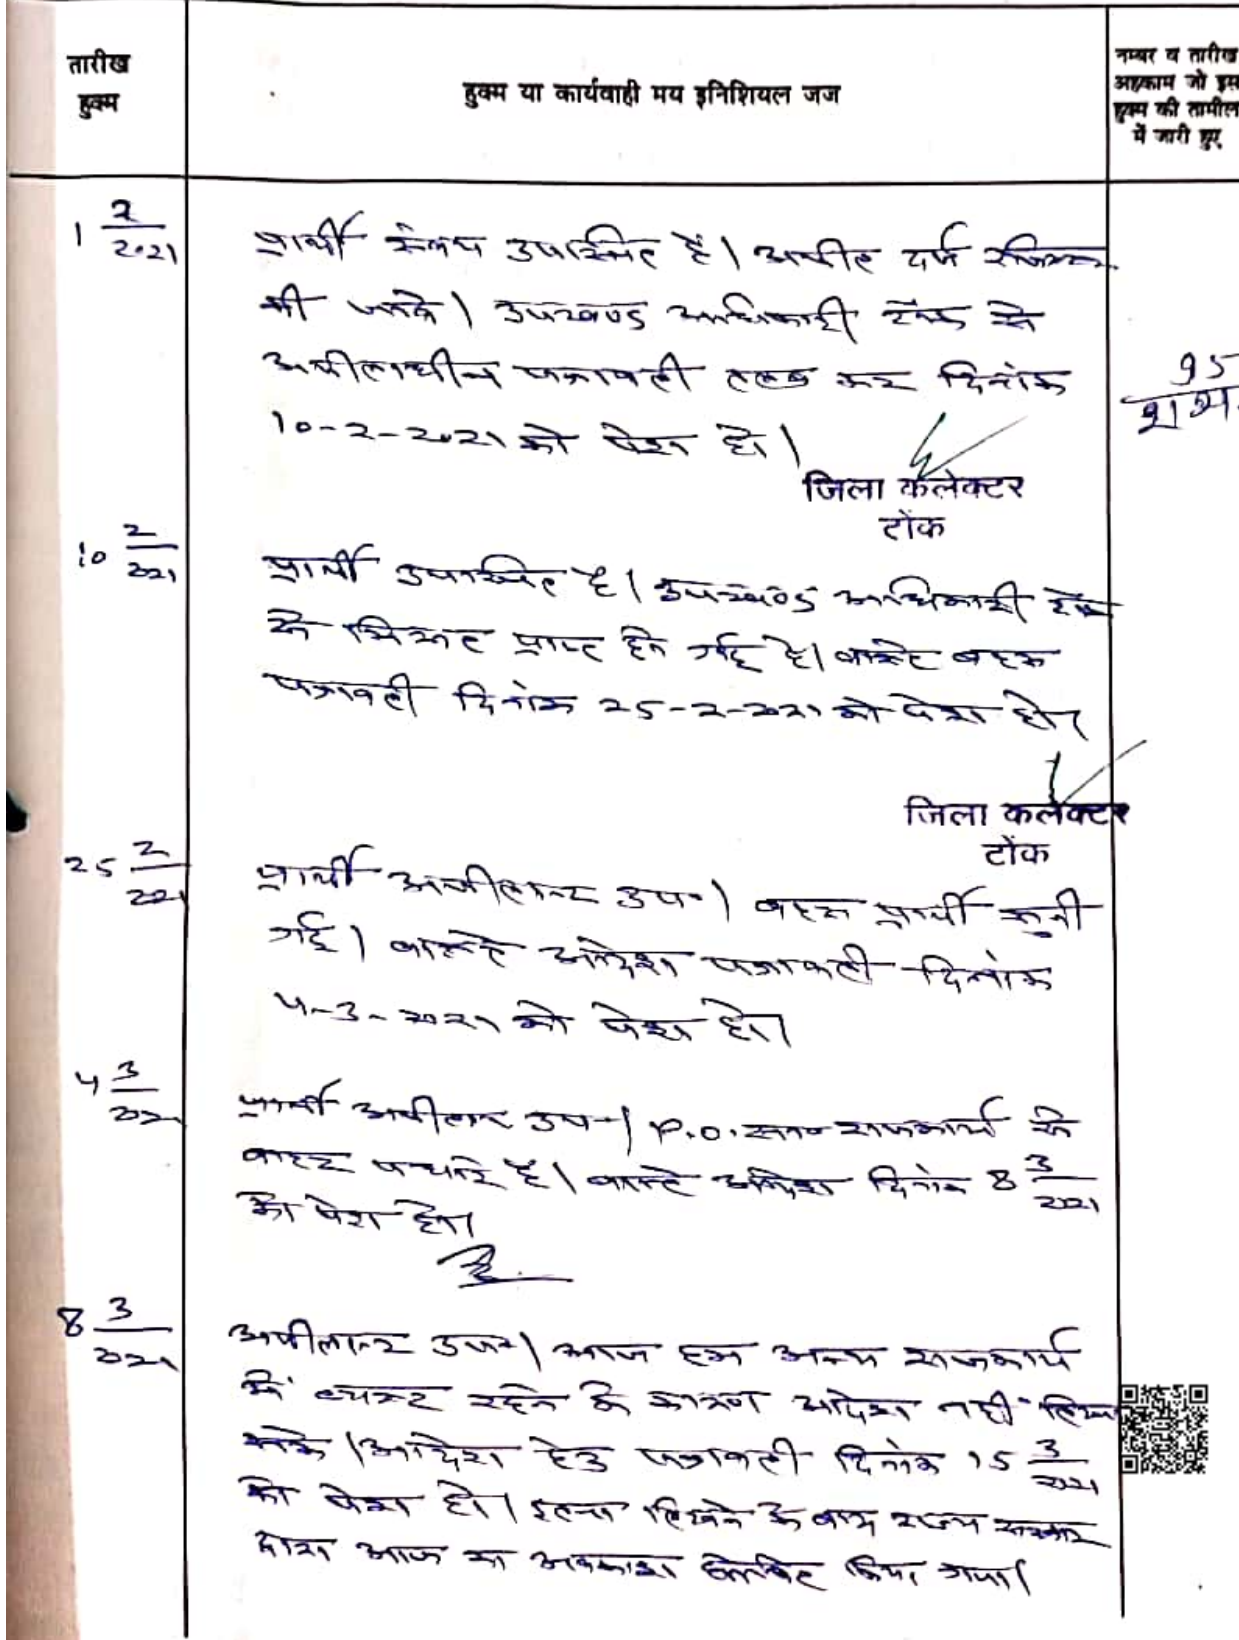 तारीख
हुक्म
हुक्म या कार्यवाही मय इनिशियल जज
नम्बर व तारीख
अहकाम जो इस
हुक्म की तामील
में जारी हुए
1 2/2021
प्रार्थी स्वंय उपस्थित है। अपील दर्ज रजिस्टर
की जावे। उपखण्ड अधिकारी टोंक से
अपीलाधीन पत्रावली तलब कर दिनांक
10-2-2021 को पेश हो।
95
जिला कलेक्टर
टोंक
10 2/2021
प्रार्थी उपस्थित है। उपखण्ड अधिकारी टोंक
से रिकार्ड प्राप्त हो गई है। वास्ते बहस
पत्रावली दिनांक 25-2-2021 को पेश हो।
जिला कलेक्टर
टोंक
25 2/2021
प्रार्थी अपीलान्ट उप०। बहस प्रार्थी सुनी
गई। वास्ते आदेश पत्रावली दिनांक
4-3-2021 को पेश हो।
4 3/2021
प्रार्थी अपीलान्ट उप०। P.O. सा० राजकार्य से
बाहर पधारे है। वास्ते आदेश दिनांक 8 3/2021
को पेश हो।
8 3/2021
अपीलान्ट उप०। आज हम अन्य राजकार्य
में व्यस्त रहने के कारण आदेश नहीं लिखा
सके। आदेश हेतु पत्रावली दिनांक 15 3/2021
को पेश हो। इतना लिखने के बाद राज्य सरकार
द्वारा आज का अवकाश घोषित किया गया।